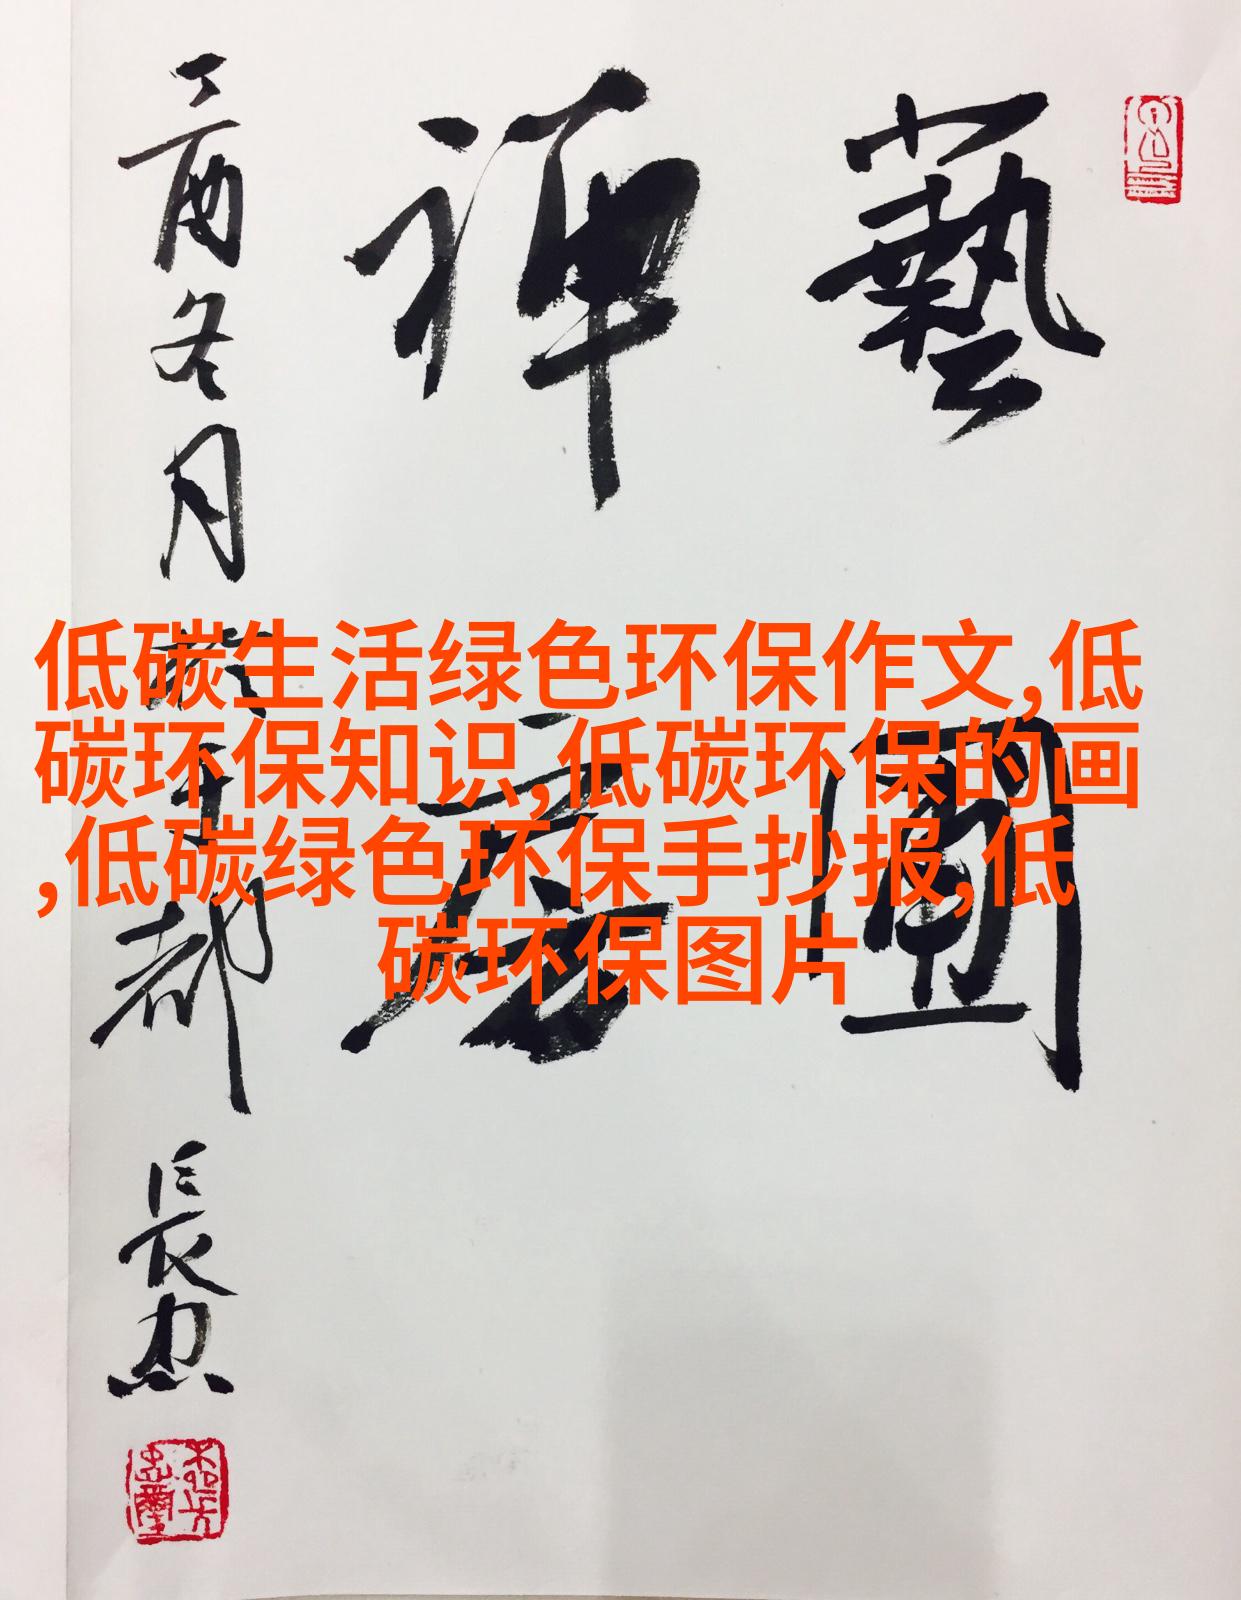 藝圃
禪房
丁酉冬月
都
長忠
低碳生活绿色环保作文,低
碳环保知识,低碳环保的画
,低碳绿色环保手抄报,低
碳环保图片